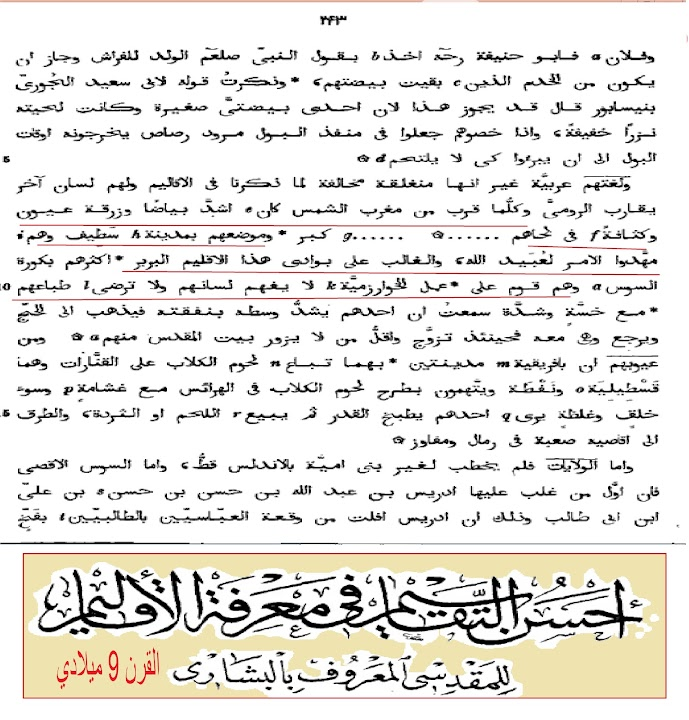 ٢٤٣
وفلان a فابو حنيفة رحّه اخذ b بقول النبىّ صلعم الولد للفراش وجاز ان
يكون من الخدم الذين c بقيت بيضتهم، *وذكرتُ قوله لابى سعيد الجُورىّ
بنيسابور قال قد يجوز هذا لان احدى بيضتىّ صغيرة وكانت لحيته
نزرًا خفيفة، واذا خصوهم جعلوا فى منفذ البول مرود رصاص يخرجونه اوقات
5 البول الى ان يبرئوا كى لا يلتحم d ۞
ولغتهم عربيّة غير انها منغلقة مخالفة لما ذكرنا فى الاقاليم ولهم لسان آخر
يقارب الرومىّ وكلّما قرب من مغرب الشمس كان e اشدّ بياضا وزرقة عيون
وكثافة f فى لحاهم ...... ۞ ...... g كبر *وموضعهم بمدينة h سَطِيف وهم i
مهّدوا الامر لعُبَيد الله، والغالب على بوادى هذا الاقليم البربر *اكثرهم بكورة
10 السوس a وهم قوم على *عمل الخوارزميّة k لا يفهم لسانهم ولا ترضى l طباعهم
*مع خسّة وشدّة سمعتُ ان احدهم يشدّ وسطه بنفقته فيذهب الى الحجّ
ويرجع وهى معه فحينئذ تزوّج واقلّ من لا يزور بيت المقدس منهم a ۞ ومن
عيوبهم ان بافريقية m مدينتين *بهما تباع n لحوم الكلاب على القنّارات وهما
قَسْطِيلِيَة o ونَفْطَة ويتّهمون بطرح لحوم الكلاب فى الهرائس مع غشامة p وسوء
15 خلق وغلظة يرى q احدهم يطبخ القدر ثم يبيع r اللحم او الثردة، والطرق
الى اقصيه صعبة فى رمال ومفاوز ۞
واما الولايات فلم يخطب لغير بنى اميّة بالاندلس قطّ، واما السوس الاقصى
فان اوّل من غلب عليها ادريس بن عبد الله بن حسن بن حسن s بن علىّ
ابن ابى طالب وذلك ان ادريس افلت من وقعة العبّاسيّين بالطالبيّين t بفَخّ
أحسن التقاسيم في معرفة الأقاليم
للمقدسي المعروف بالبشاري
القرن 9 ميلادي